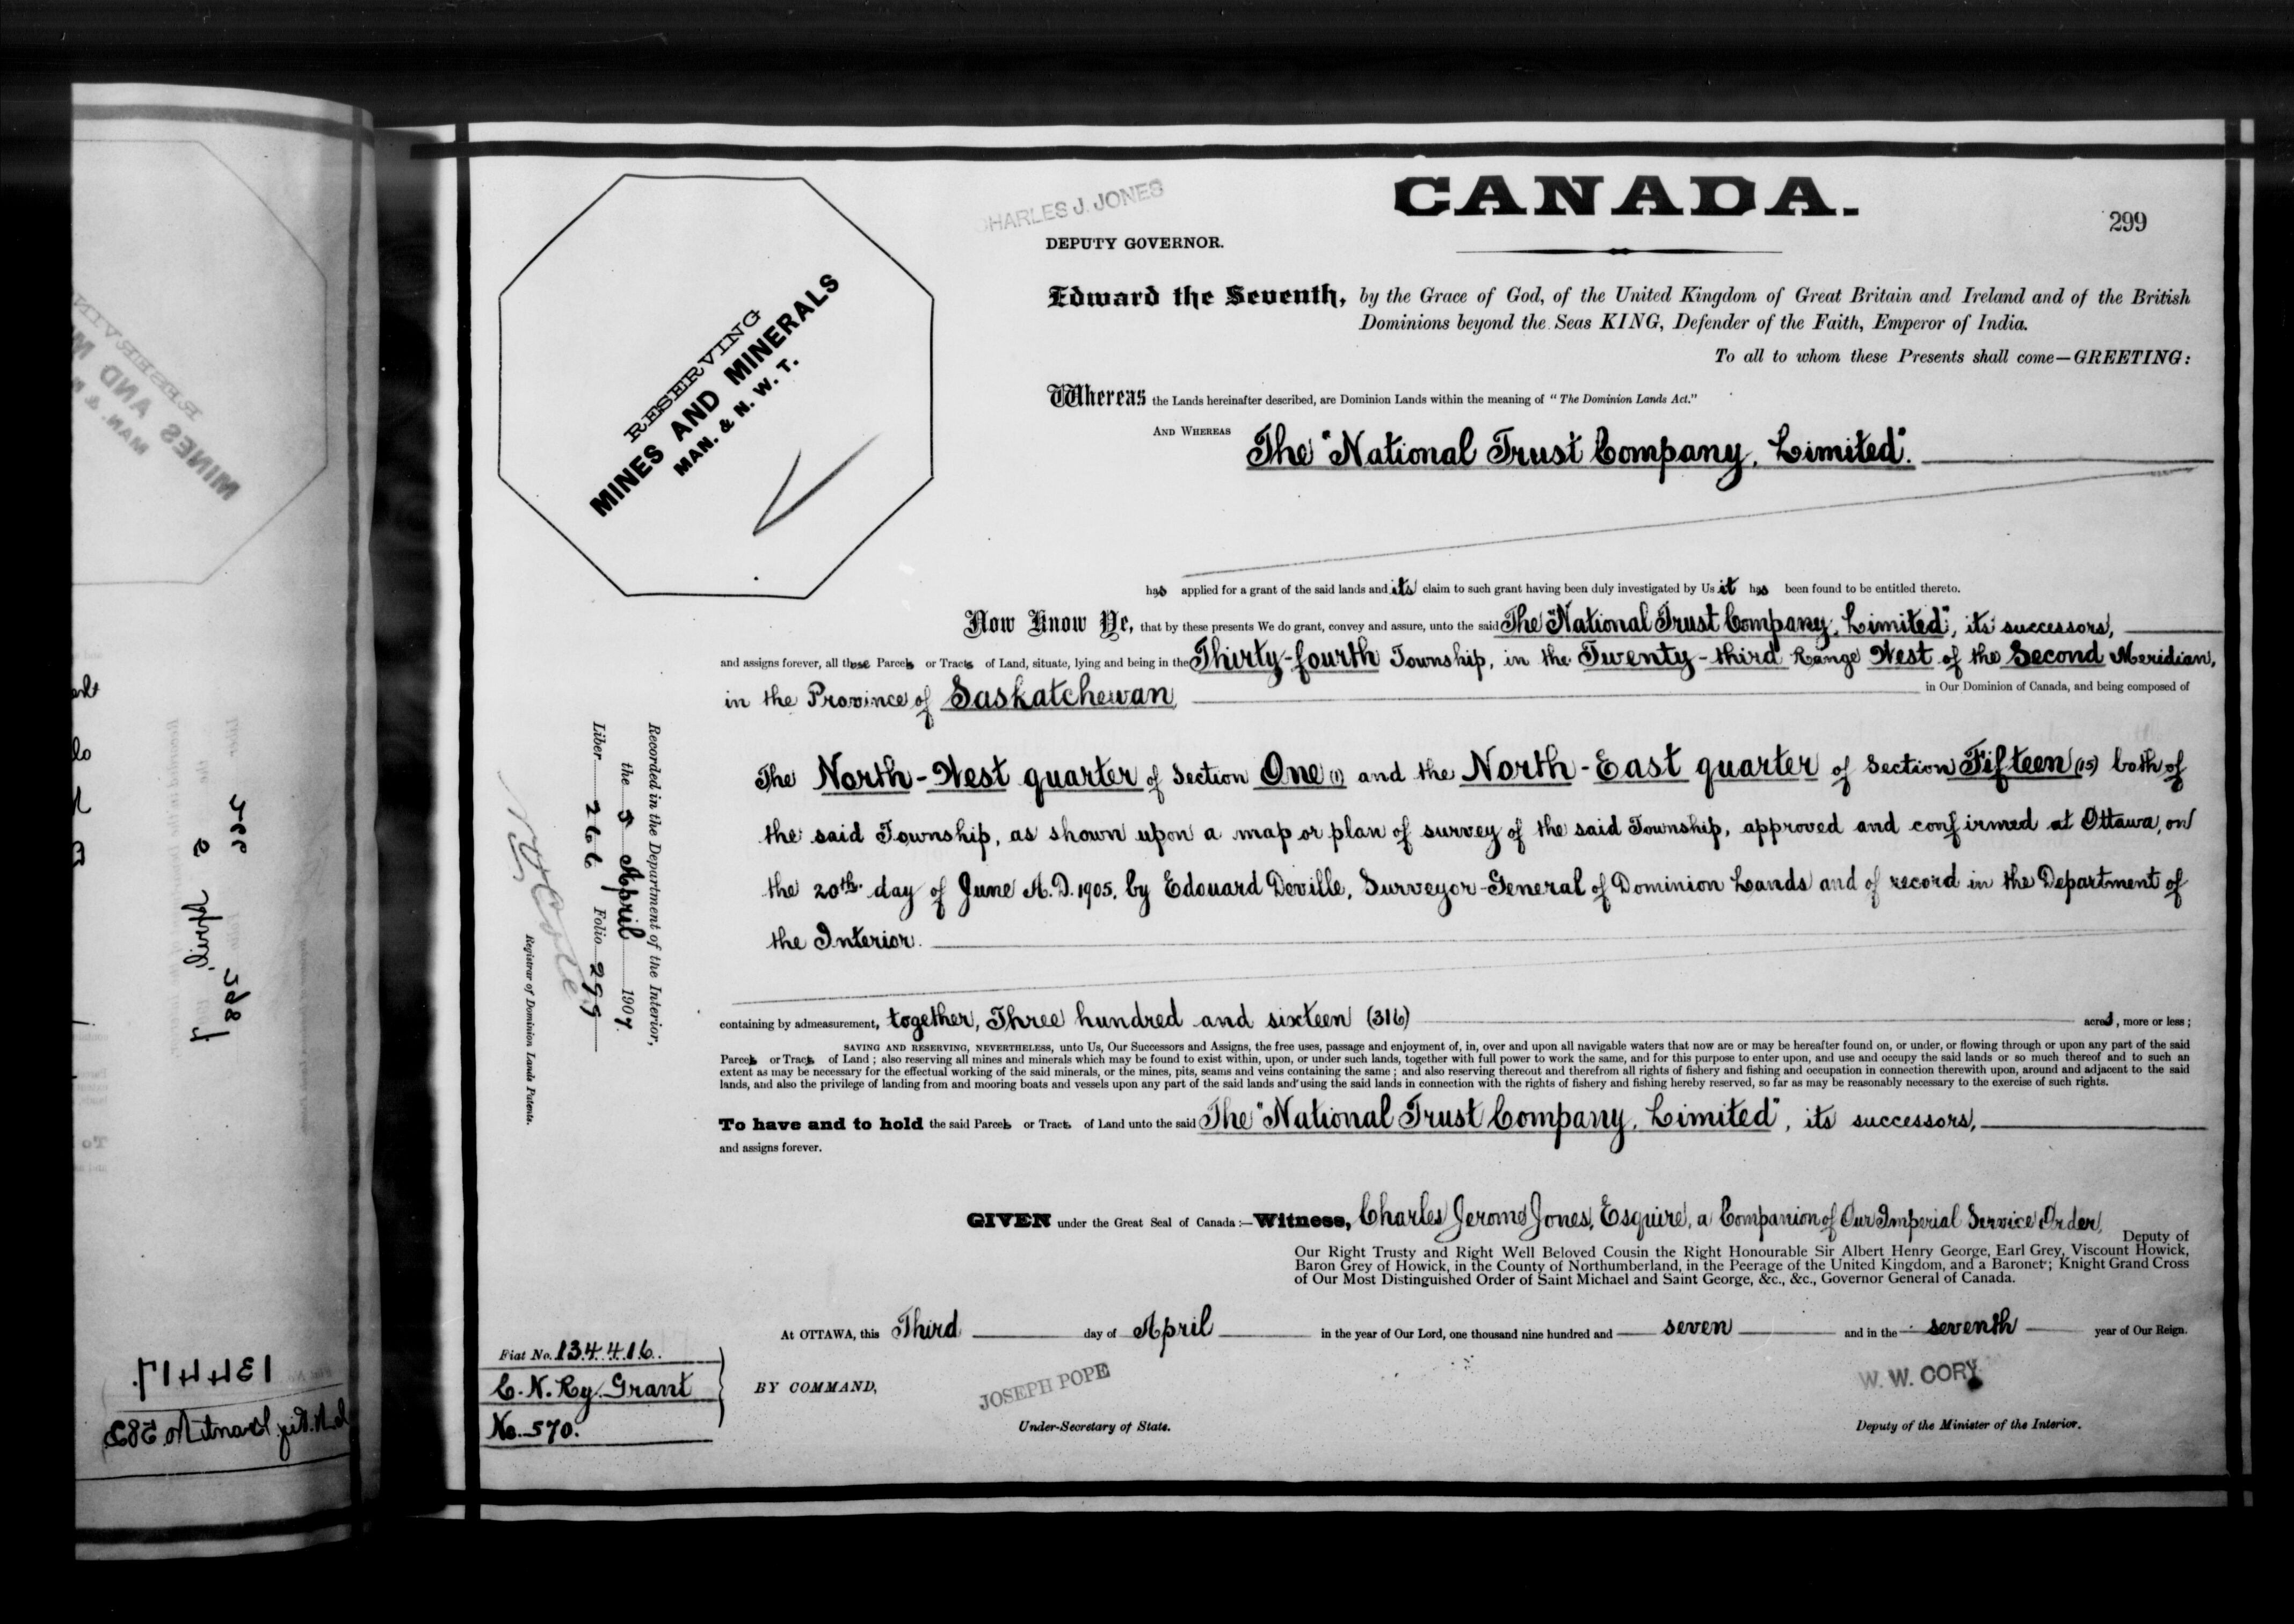 CANADA.
299
CHARLES J. JONES
DEPUTY GOVERNOR.
RESERVING
MINES AND MINERALS
MAN. & N. W. T.
Edward the Seventh, by the Grace of God, of the United Kingdom of Great Britain and Ireland and of the British
Dominions beyond the Seas KING, Defender of the Faith, Emperor of India.
To all to whom these Presents shall come—GREETING:
Whereas the Lands hereinafter described, are Dominion Lands within the meaning of "The Dominion Lands Act."
AND WHEREAS The "National Trust Company, Limited".
has applied for a grant of the said lands and its claim to such grant having been duly investigated by Us it has been found to be entitled thereto.
Now Know Ye, that by these presents We do grant, convey and assure, unto the said The "National Trust Company, Limited", its successors,
and assigns forever, all those Parcels or Tracts of Land, situate, lying and being in the Thirty-fourth Township, in the Twenty-third Range West of the Second Meridian,
in the Province of Saskatchewan in Our Dominion of Canada, and being composed of
The North-West quarter of Section One (1) and the North-East quarter of Section Fifteen (15) both of
the said Township, as shown upon a map or plan of survey of the said Township, approved and confirmed at Ottawa, on
the 20th. day of June A.D. 1905, by Edouard Deville, Surveyor-General of Dominion Lands and of record in the Department of
the Interior.
containing by admeasurement, together, Three hundred and sixteen (316) acres, more or less;
SAVING AND RESERVING, NEVERTHELESS, unto Us, Our Successors and Assigns, the free uses, passage and enjoyment of, in, over and upon all navigable waters that now are or may be hereafter found on, or under, or flowing through or upon any part of the said
Parcels or Tracts of Land; also reserving all mines and minerals which may be found to exist within, upon, or under such lands, together with full power to work the same, and for this purpose to enter upon, and use and occupy the said lands or so much thereof and to such an
extent as may be necessary for the effectual working of the said minerals, or the mines, pits, seams and veins containing the same; and also reserving thereout and therefrom all rights of fishery and fishing and occupation in connection therewith upon, around and adjacent to the said
lands, and also the privilege of landing from and mooring boats and vessels upon any part of the said lands and using the said lands in connection with the rights of fishery and fishing hereby reserved, so far as may be reasonably necessary to the exercise of such rights.
To have and to hold the said Parcels or Tracts of Land unto the said The "National Trust Company, Limited", its successors,
and assigns forever.
GIVEN under the Great Seal of Canada:—Witness, Charles Jerome Jones, Esquire, a Companion of Our Imperial Service Order, Deputy of
Our Right Trusty and Right Well Beloved Cousin the Right Honourable Sir Albert Henry George, Earl Grey, Viscount Howick,
Baron Grey of Howick, in the County of Northumberland, in the Peerage of the United Kingdom, and a Baronet; Knight Grand Cross
of Our Most Distinguished Order of Saint Michael and Saint George, &c., &c., Governor General of Canada.
At OTTAWA, this Third day of April in the year of Our Lord, one thousand nine hundred and seven and in the seventh year of Our Reign.
BY COMMAND,
JOSEPH POPE
Under-Secretary of State.
W. W. CORY
Deputy of the Minister of the Interior.
Recorded in the Department of the Interior,
the 5 April 1907
Liber 266 Folio 299
Registrar of Dominion Lands Patents.
Fiat No. 134416.
C. N. Ry. Grant
No. 570.
MINES AND
MAN. &
266
5 April
298
134417.